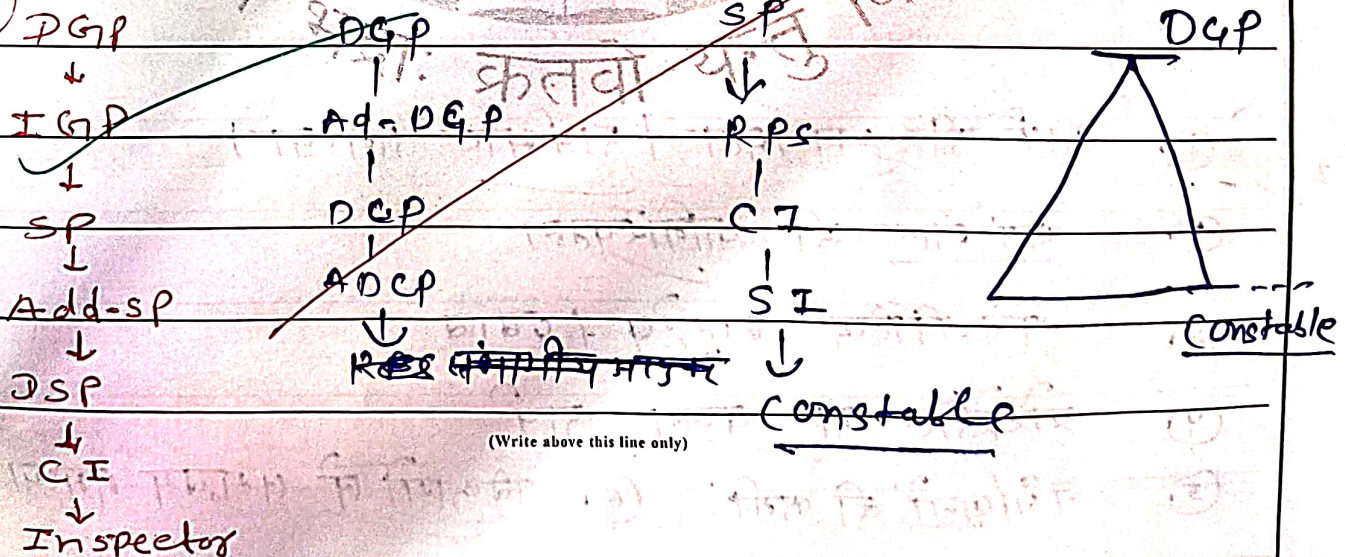 DGP
↓
IGP
↓
SP
↓
Add-SP
↓
DSP
↓
CI
↓
Inspector
DGP
|
Ad-DGP
|
DCP
|
ADCP
↓
क्रतवो यन्तु
SP
↓
RPS
|
CI
|
SI
↓
Constable
DGP
Constable
(Write above this line only)